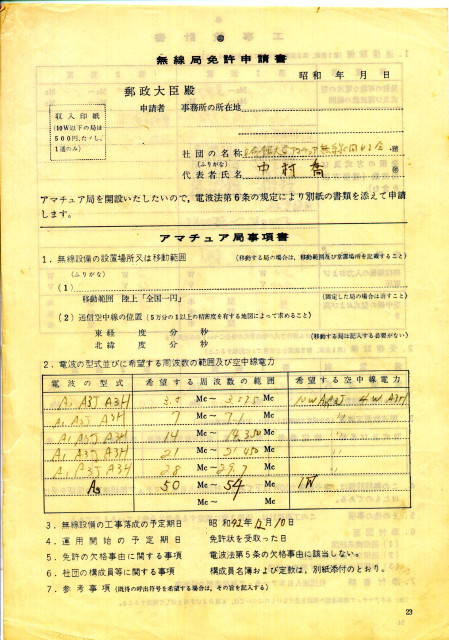 無線局免許申請書
昭和 年 月 日
郵政大臣殿
収入印紙
(10W以下の局は
500円,ただし,
1通のみ)
申請者 事務所の所在地
社団の名称
(ふりがな)
代表者氏名 中村喬
アマチュア局を開設いたしたいので,電波法第6条の規定により別紙の書類を添えて申請
します。
アマチュア局事項書
1. 無線設備の設置場所又は移動範囲 (移動する局の場合は,移動範囲及び常置場所を記載すること)
(ふりがな)
(1)
移動範囲 陸上「全国一円」 (固定した局の場合は消すこと)
(2) 送信空中線の位置 (5万分の1以上の精密度を有する地図によって求めること)
東経 度 分 秒
(移動する局は記入する必要がない)
北緯 度 分 秒
2. 電波の型式並びに希望する周波数の範囲及び空中線電力
電波の型式 希望する周波数の範囲 希望する空中線電力
A1 A3J A3H 3.5 Mc~ 3.575 Mc 10W A1A3J 4W A3H
A1 A3J A3H 7 Mc~ 7.1 Mc 〃
A1 A3J A3H 14 Mc~ 14.350 Mc 〃
A1 A3J A3H 21 Mc~ 21.450 Mc 〃
A1 A3J A3H 28 Mc~ 29.7 Mc 〃
A3 50 Mc~ 54 Mc 1W
Mc~ Mc
3. 無線設備の工事落成の予定期日 昭和42年12月10日
4. 運用開始の予定期日 免許状を受取った日
5. 免許の欠格事由に関する事項 電波法第5条の欠格事由に該当しない。
6. 社団の構成員等に関する事項 構成員名簿および定数は,別紙添付のとおり。
7. 参考事項 (既得の呼出符号を希望する場合は,その旨を記入する)
23